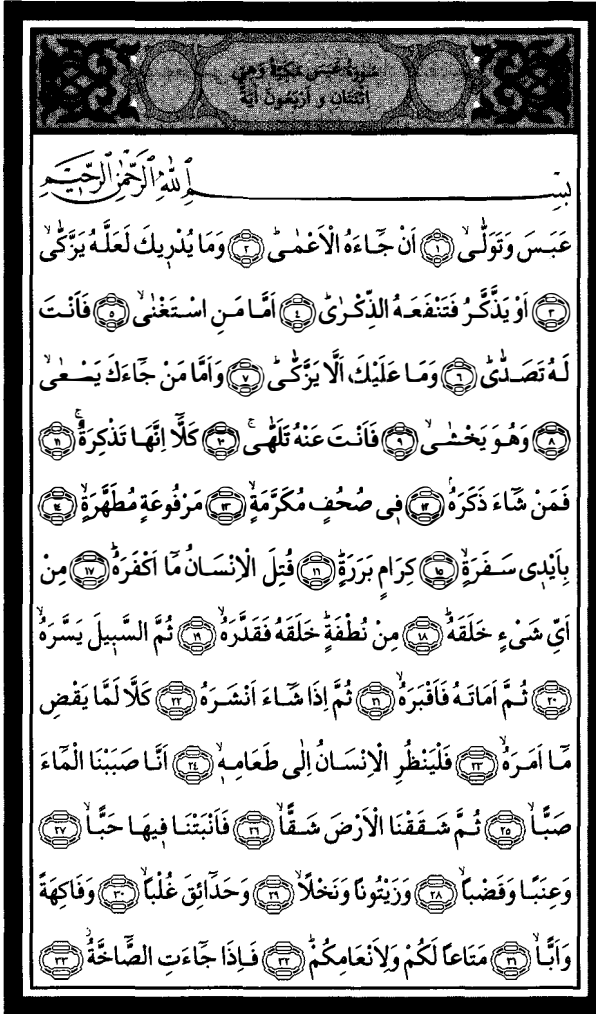 سُورَةُ عَبَسَ مَكِّيَّةٌ وَهِيَ
اثْنَتَانِ وَ اَرْبَعُونَ اٰيَةً
بِسْمِ اللّٰهِ الرَّحْمٰنِ الرَّحٖيمِ
عَبَسَ وَتَوَلّٰىۙ ﴿١﴾ اَنْ جَٓاءَهُ الْاَعْمٰىۜ ﴿٢﴾ وَمَا يُدْرٖيكَ لَعَلَّهُ يَزَّكّٰىۙ
﴿٣﴾ اَوْ يَذَّكَّرُ فَتَنْفَعَهُ الذِّكْرٰىۜ ﴿٤﴾ اَمَّا مَنِ اسْتَغْنٰىۙ ﴿٥﴾ فَاَنْتَ
لَهُ تَصَدّٰىۜ ﴿٦﴾ وَمَا عَلَيْكَ اَلَّا يَزَّكّٰىۜ ﴿٧﴾ وَاَمَّا مَنْ جَٓاءَكَ يَسْعٰىۙ
﴿٨﴾ وَهُوَ يَخْشٰىۙ ﴿٩﴾ فَاَنْتَ عَنْهُ تَلَهّٰىۚ ﴿١٠﴾ كَلَّٓا اِنَّهَا تَذْكِرَةٌۚ ﴿١١﴾
فَمَنْ شَٓاءَ ذَكَرَهُۢ ﴿١٢﴾ فٖى صُحُفٍ مُكَرَّمَةٍۙ ﴿١٣﴾ مَرْفُوعَةٍ مُطَهَّرَةٍۙ ﴿١٤﴾
بِاَيْدٖى سَفَرَةٍۙ ﴿١٥﴾ كِرَامٍ بَرَرَةٍۜ ﴿١٦﴾ قُتِلَ الْاِنْسَانُ مَٓا اَكْفَرَهُۜ ﴿١٧﴾ مِنْ
اَىِّ شَىْءٍ خَلَقَهُۜ ﴿١٨﴾ مِنْ نُطْفَةٍۜ خَلَقَهُ فَقَدَّرَهُۙ ﴿١٩﴾ ثُمَّ السَّبٖيلَ يَسَّرَهُۙ
﴿٢٠﴾ ثُمَّ اَمَاتَهُ فَاَقْبَرَهُۙ ﴿٢١﴾ ثُمَّ اِذَا شَٓاءَ اَنْشَرَهُ ﴿٢٢﴾ كَلَّا لَمَّا يَقْضِ
مَٓا اَمَرَهُۙ ﴿٢٣﴾ فَلْيَنْظُرِ الْاِنْسَانُ اِلٰى طَعَامِهٖۙ ﴿٢٤﴾ اَنَّا صَبَبْنَا الْمَٓاءَ
صَبًّاۙ ﴿٢٥﴾ ثُمَّ شَقَقْنَا الْاَرْضَ شَقًّاۙ ﴿٢٦﴾ فَاَنْبَتْنَا فٖيهَا حَبًّاۙ ﴿٢٧﴾
وَعِنَبًا وَقَضْبًاۙ ﴿٢٨﴾ وَزَيْتُونًا وَنَخْلًاۙ ﴿٢٩﴾ وَحَدَٓائِقَ غُلْبًاۙ ﴿٣٠﴾ وَفَاكِهَةً
وَاَبًّاۙ ﴿٣١﴾ مَتَاعًا لَكُمْ وَلِاَنْعَامِكُمْۜ ﴿٣٢﴾ فَاِذَا جَٓاءَتِ الصَّٓاخَّةُۘ ﴿٣٣﴾